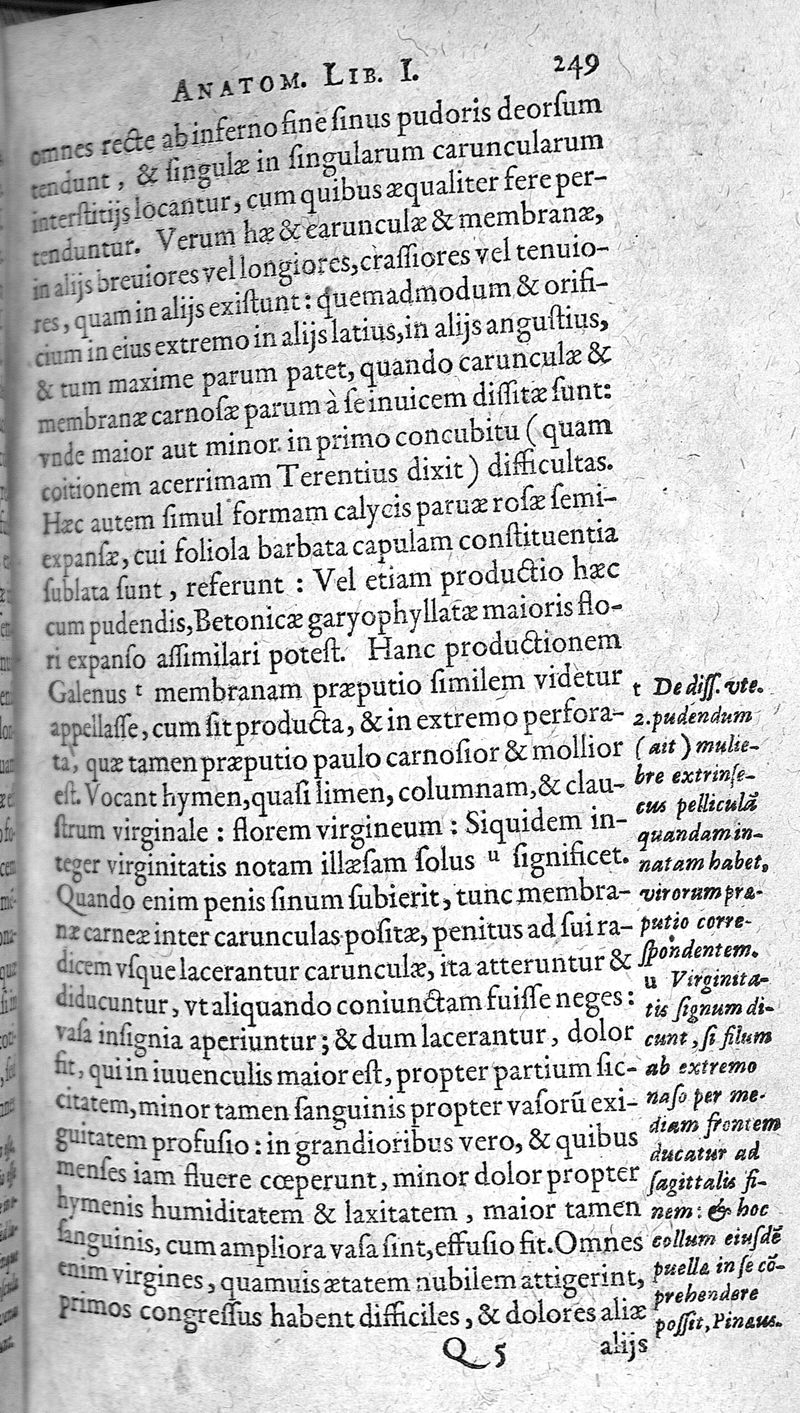 ANATOM. LIB. I. 249
omnes recte ab inferno fine ſinus pudoris deorſum
tendunt, & ſingulæ in ſingularum caruncularum
interſtitijs locantur, cum quibus æqualiter fere per-
tenduntur. Verum hæ & earunculæ & membranæ,
in alijs breuiores vel longiores, craſſiores vel tenuio-
res, quam in alijs exiſtunt: quemadmodum & orifi-
cium in eius extremo in alijs latius, in alijs anguſtius,
& tum maxime parum patet, quando carunculæ &
membranæ carnoſæ parum à ſeinuicem diſſitæ ſunt:
vnde maior aut minor in primo concubitu (quam
coitionem acerrimam Terentius dixit) difficultas.
Hæc autem ſimul formam calycis paruæ roſæ ſemi-
expanſæ, cui foliola barbata capulam conſtituentia
ſublata ſunt, referunt: Vel etiam productio hæc
cum pudendis, Betonicæ garyophyllatæ maioris flo-
ri expanſo aſſimilari poteſt. Hanc productionem
Galenus t membranam præputio ſimilem videtur
appellaſſe, cum ſit producta, & in extremo perfora-
ta, quæ tamen præputio paulo carnoſior & mollior
eſt. Vocant hymen, quaſi limen, columnam, & clau-
ſtrum virginale: florem virgineum: Siquidem in-
teger virginitatis notam illæſam ſolus u ſignificet.
Quando enim penis ſinum ſubierit, tunc membra-
næ carneæ inter carunculas poſitæ, penitus ad ſui ra-
dicem vſque lacerantur carunculæ, ita atteruntur &
diducuntur, vt aliquando coniunctam fuiſſe neges:
vaſa inſignia aperiuntur; & dum lacerantur, dolor
fit, qui in iuuenculis maior eſt, propter partium ſic-
citatem, minor tamen ſanguinis propter vaſorū exi-
guitatem profuſio: in grandioribus vero, & quibus
menſes iam fluere cœperunt, minor dolor propter
hymenis humiditatem & laxitatem, maior tamen
ſanguinis, cum ampliora vaſa ſint, effuſio fit. Omnes
enim virgines, quamuis ætatem nubilem attigerint,
primos congreſſus habent difficiles, & dolores aliæ
Q 5 alijs
t De diſſ. vte.
2. pudendum
(ait) mulie-
bre extrinſe-
cus pelliculā
quandam in-
natam habet,
virorum præ-
putio corre-
ſpondentem.
u Virginita-
tis ſignum di-
cunt, ſi filum
ab extremo
naſo per me-
diam frontem
ducatur ad
ſagittalis fi-
nem: & hoc
collum eiuſdē
puella in ſe cō-
prehendere
poſſit, Pinæus.